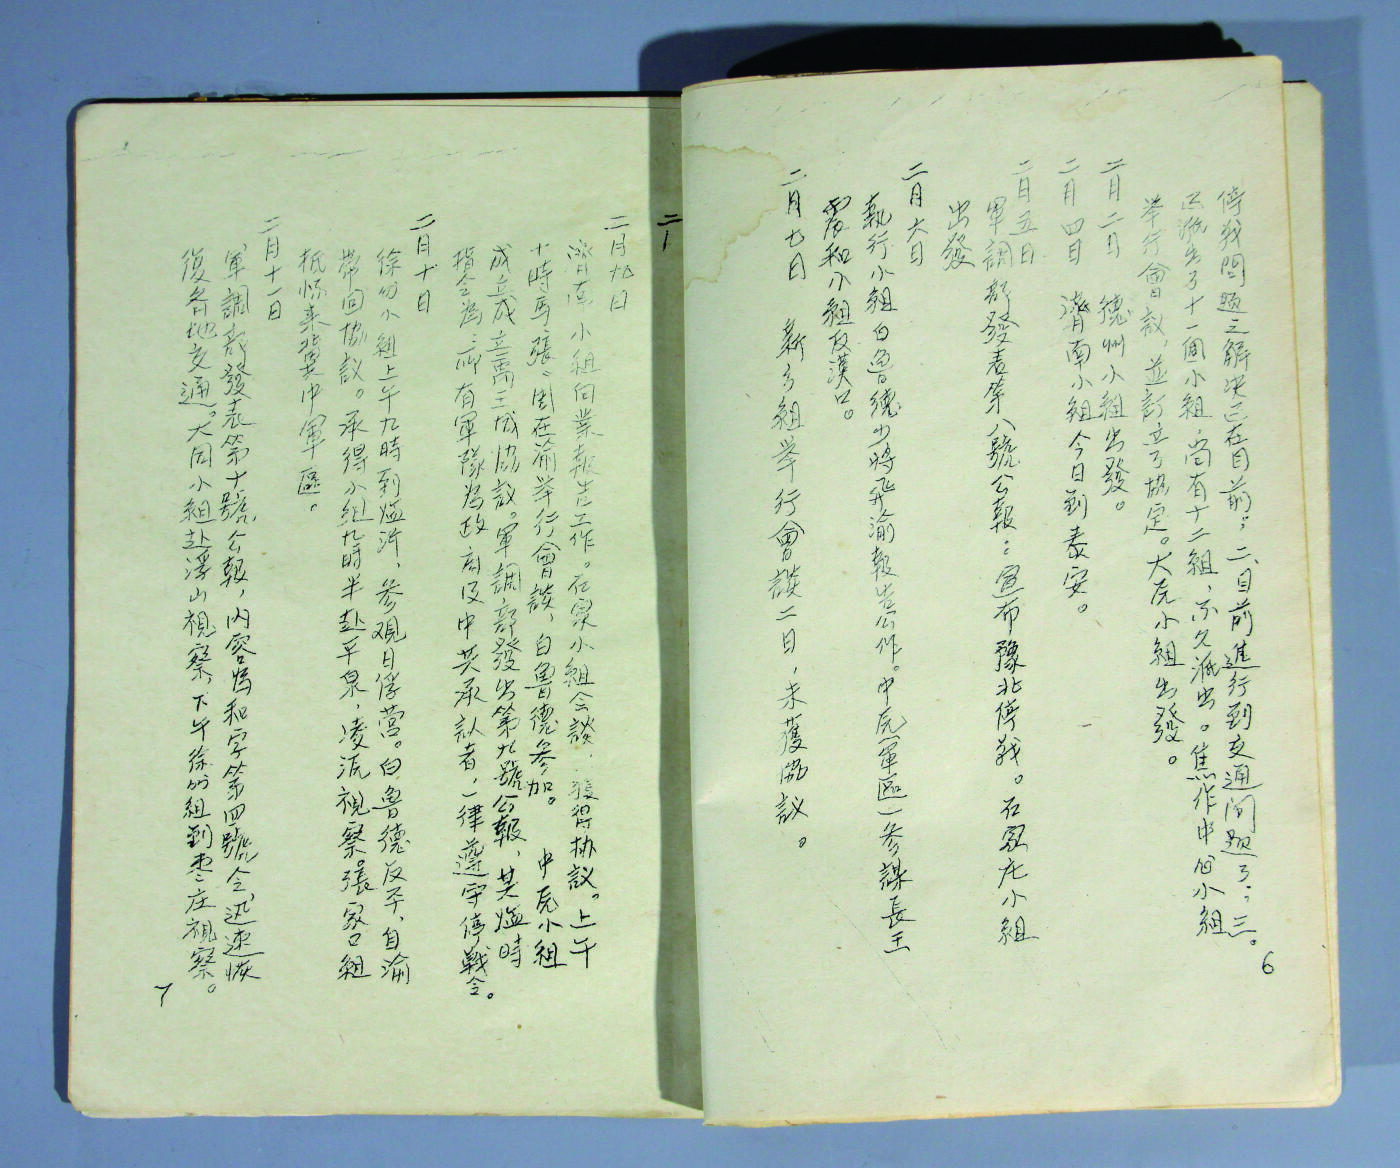 停戰問題之解决已在目前；二、目前進行到交通問題了；三。
已派出了十一個小組，尚有十二組，不久派出。焦作中心小組
举行會議，並訂立了協定。大庑小組出發。
二月二日 德州小組出發。
二月四日 濟南小組今日到泰安。
二月五日
軍調部發表第八號公報：宣布豫北停戰。石家庄小組
出發
二月六日
執行小組白魯德少將飛渝報告工作。中庑（軍區）參謀長王
震和小組反漢口。
二月七日 新乡組举行會談二日，未獲協議。
6
二月九日
濟南小組向業報告工作。石家小組会談，獲得协議。上午
十時馬、張、周在渝举行會談，白魯德参加。 中庑小組
成立成立禹王城协議。軍調部發出第九號公報，其临時
指令為：所有軍隊為政府及中共承认者，一律遵守停戰令。
二月十日
徐州小組上午九時到临沂，参观日俘营。白魯德反平，自渝
帶回協議。承得小組九時半赴平泉，凌沅視察張家口組
抵怀来冀中軍區。
二月十一日
軍調部發表第十號公報，内容為和字第四號令，迅速恢
復各地交通。大同小組赴浮山視察，下午徐州組到枣庄視察。
7